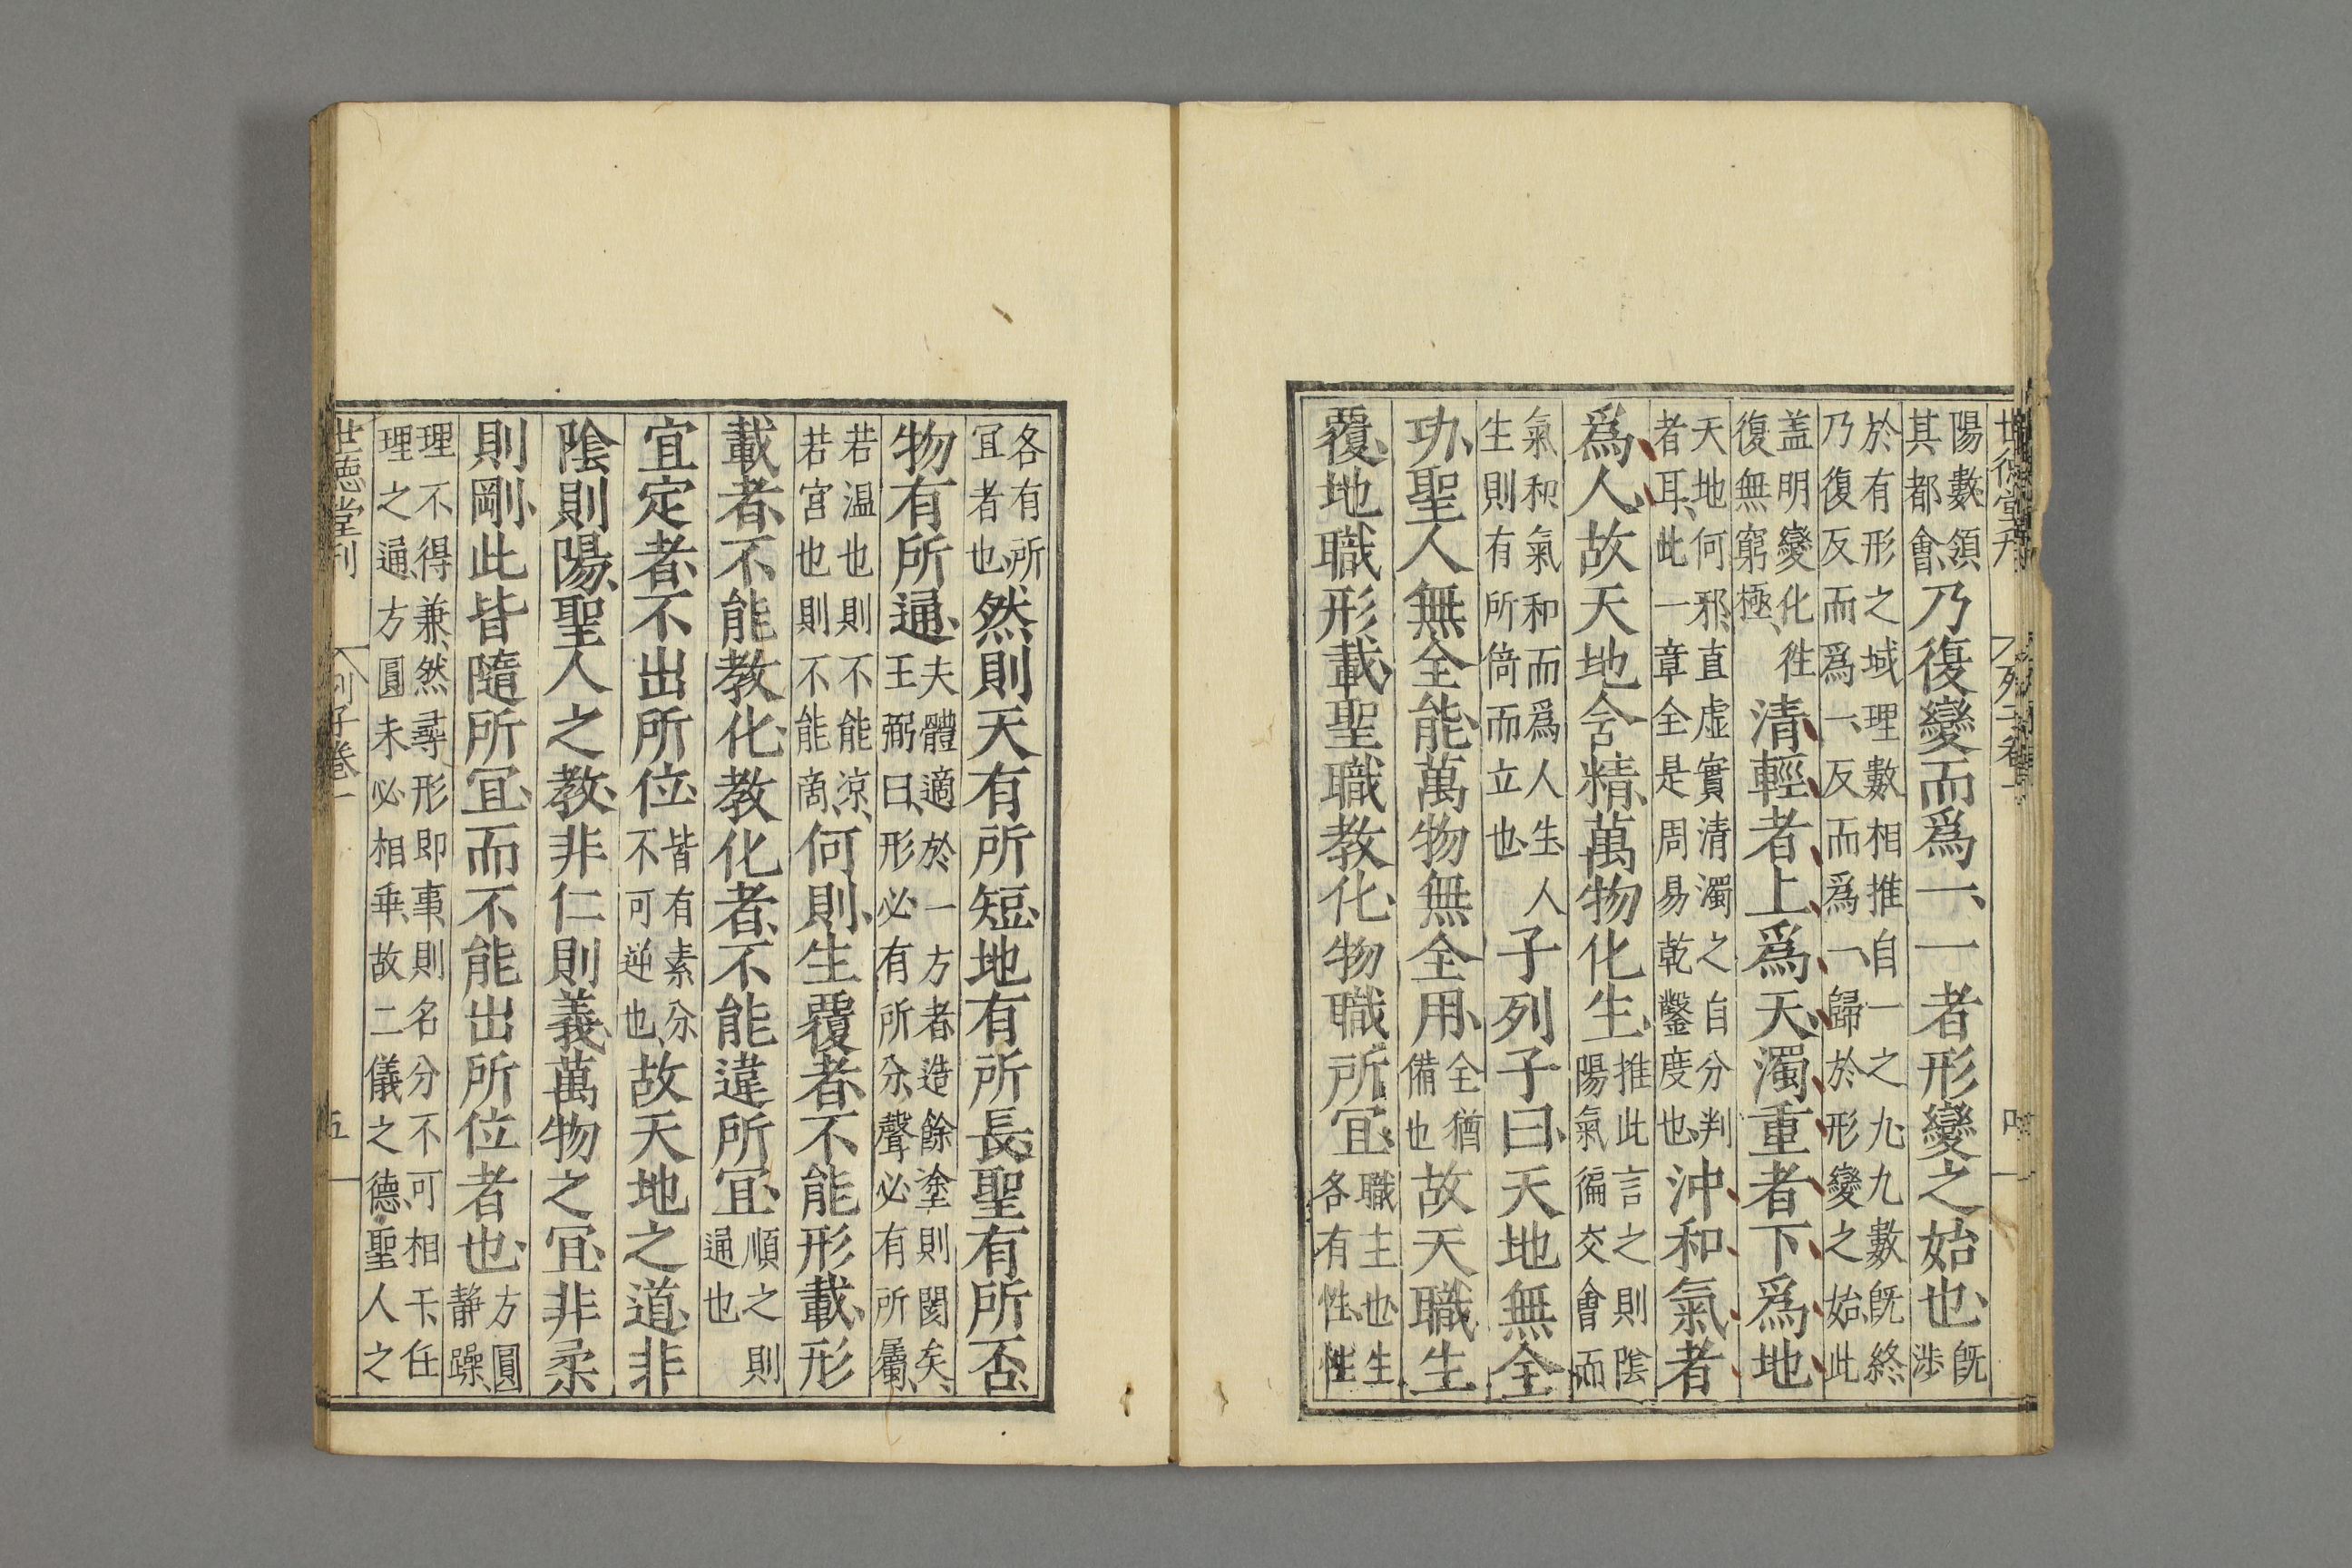 世德堂刊 列子卷一 四
陽數領其都會、乃復變而爲一、一者形變之始也、既涉
於有形之域理數相推自一之九、九數既終乃復反而爲一、反而爲一、歸於形變之始、此
蓋明變化往復無窮極、清輕者上爲天、濁重者下爲地
天地何邪、直虛實清濁之自分判者耳、此一章全是周易乾鑿度也、沖和氣者
爲人、故天地含精、萬物化生、推此言之則陰陽氣徧交會而
氣和氣和而爲人生、人生則有所倚而立也、子列子曰、天地無全
功、聖人無全能、萬物無全用、全猶備也故天職生
覆、地職形載、聖職教化、物職所冝、職主也、生各有性、性
各有所冝者也、然則天有所短、地有所長、聖有所否、
物有所通、夫體適於一方者、造餘塗則閡矣、王弼曰、形必有所分、聲必有所屬、
若温也則不能涼、若宮也則不能商、何則、生覆者、不能形載、形
載者、不能教化、教化者、不能違所冝、順之則通也
宜定者、不出所位、皆有素分、不可逆也、故天地之道、非
陰則陽、聖人之教、非仁則義、萬物之冝、非柔
則剛、此皆隨所冝、而不能出所位者也、方圓静躁、
理不得兼、然尋形即事、則名分不可相干、任理之通、方圓未必相乖、故二儀之德、聖人之
世德堂刊 列子卷一 五